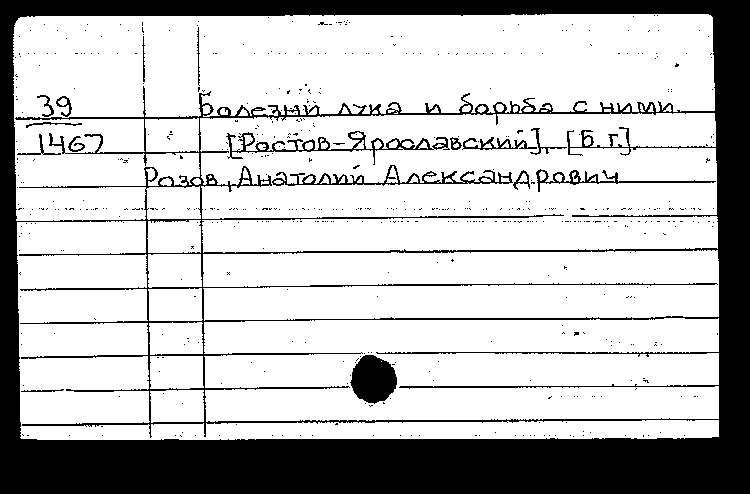 39 Болезни лука и борьба с ними.
1467 [Ростов-Ярославский], [Б.г.].
Розов, Анатолий Александрович